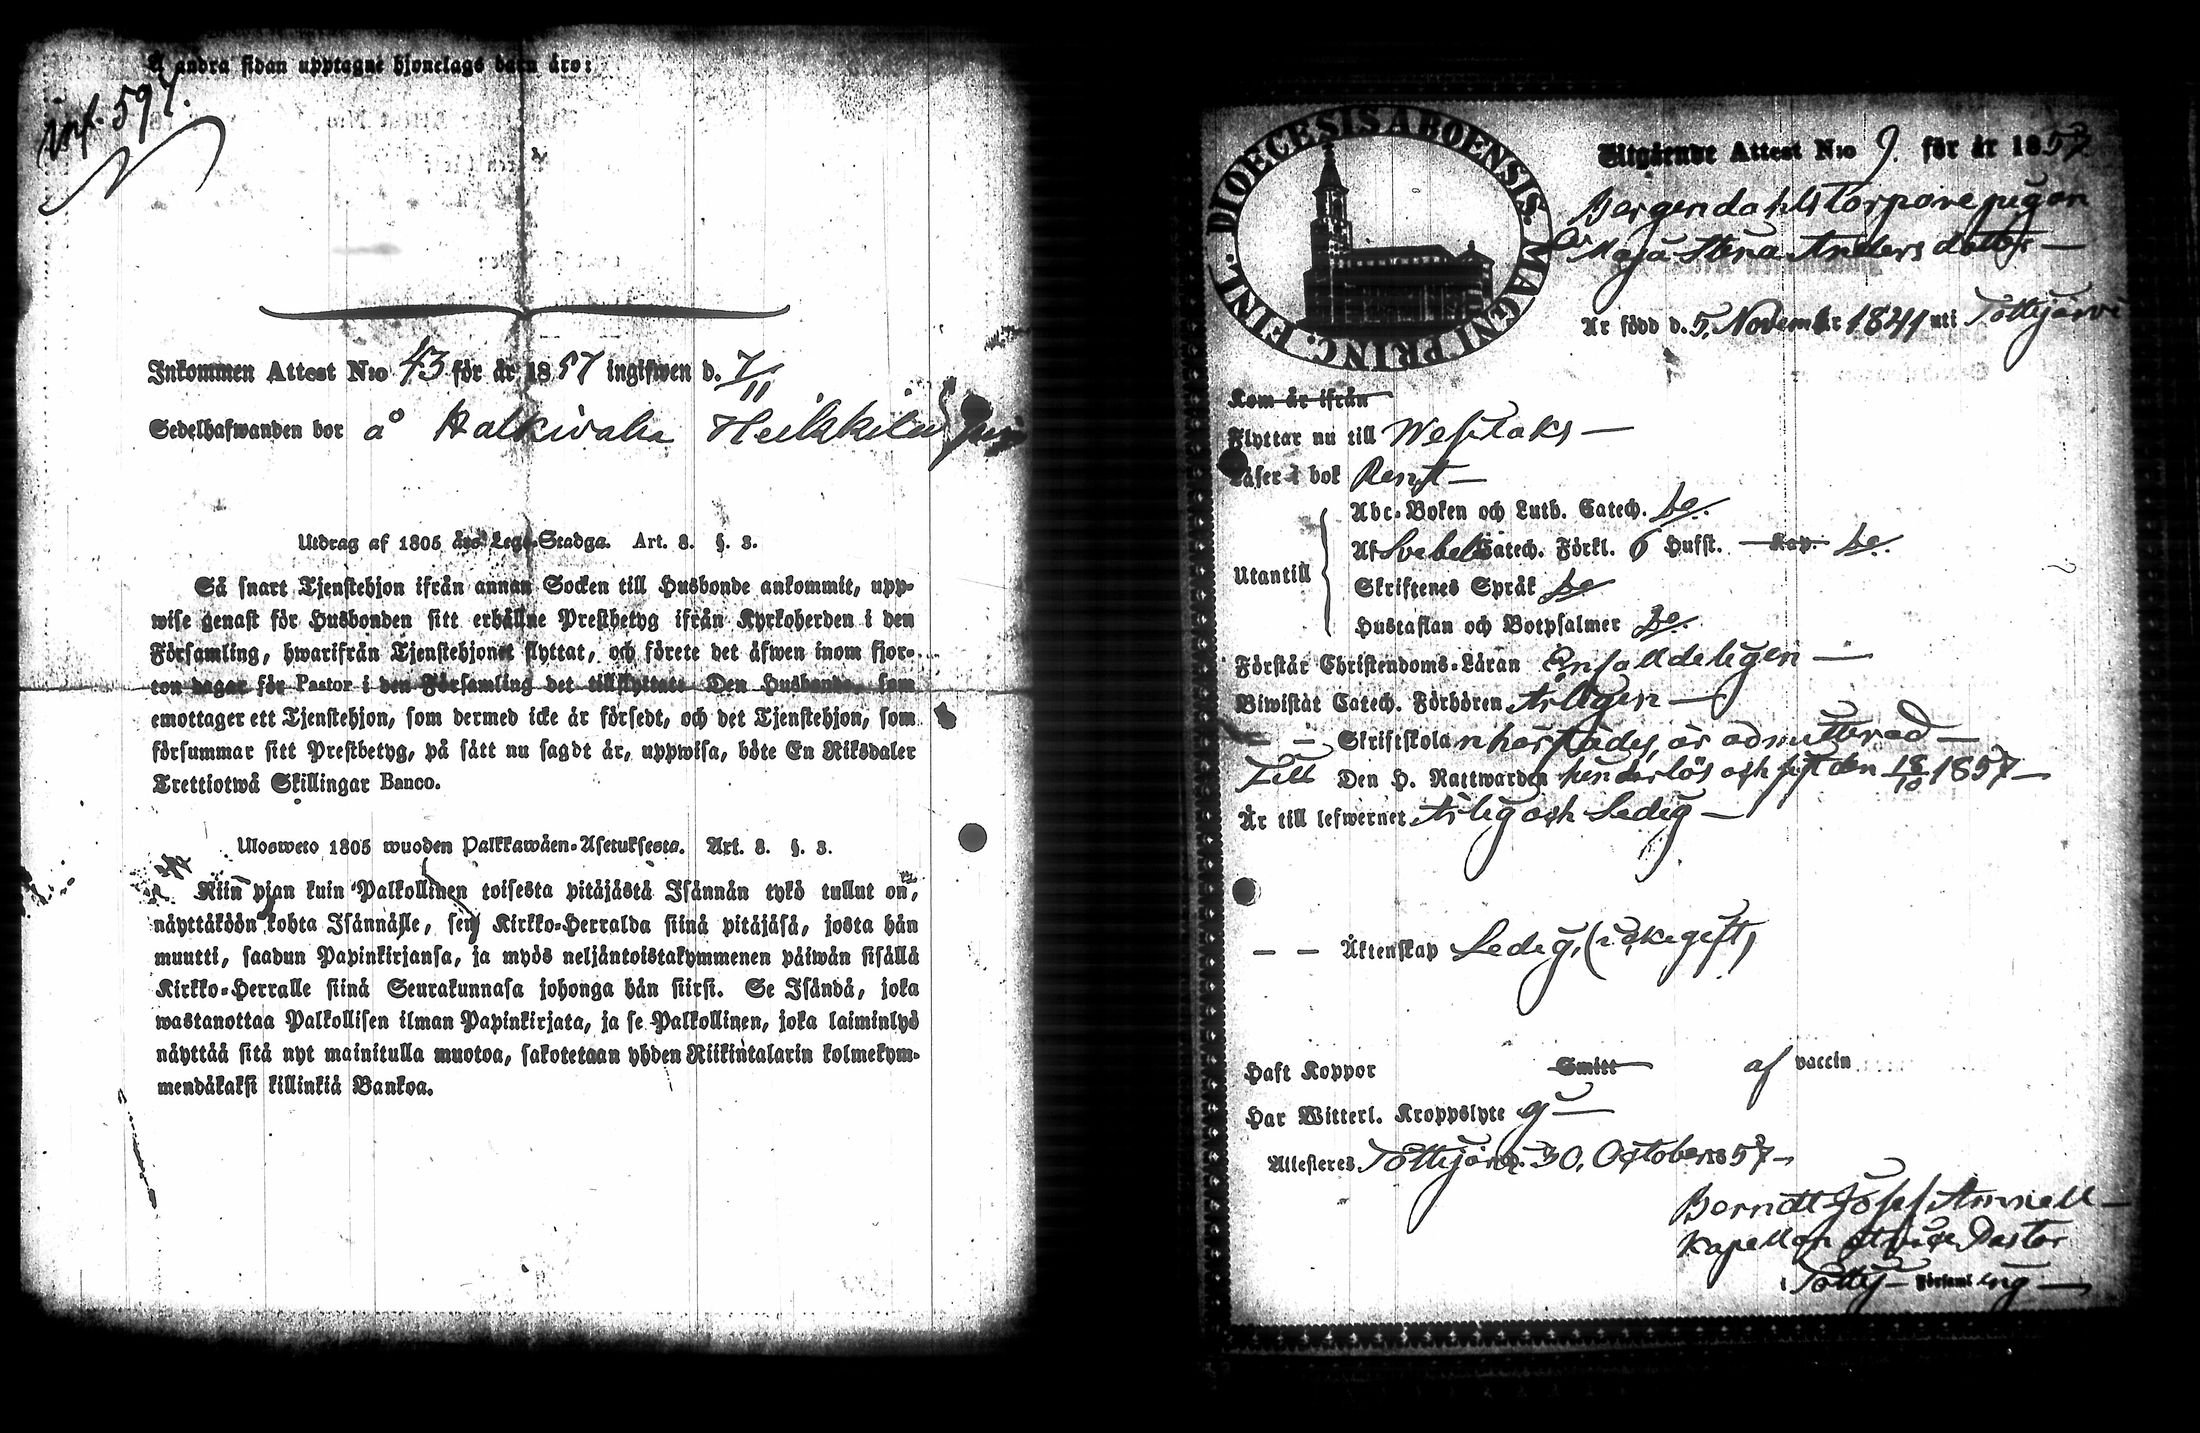 Å andra sidan upptagne hjonelags barn äro:
Inf. 597.
Inkommen Attest N:o 43 för år 1857 ingifwen d. 7/11
Sedelhafwanden bor å Halkivaha Heikkilä
Utdrag af 1805 års Lego-Stadga. Art. 8. §. 3.
Så snart Tjenstehjon ifrån annan Socken till Husbonde ankommit, upp-
wise genast för Husbonden sitt erhållne Prestbetyg ifrån Kyrkoherden i den
Församling, hwarifrån Tjenstehjonet flyttat, och förete det äfwen inom fjor-
ton dagar för Pastor i den Församling det tillflyttat. Den Husbonde, som
emottager ett Tjenstehjon, som dermed icke är försedt, och det Tjenstehjon, som
försummar sitt Prestbetyg, på sätt nu sagdt är, uppwisa, böte En Riksdaler
Trettiotwå Skillingar Banco.
Ulosweto 1805 wuoden Palkkawäen-Asetuksesta. Art. 8. §. 3.
Niin pjan kuin Palkollinen toisesta pitäjästä Isännän tykö tullut on,
näyttäköön kohta Isännälle, sen Kirkko-Herralda siinä pitäjäsä, josta hän
muutti, saadun Papinkirjansa, ja myös neljäntoistakymmenen päiwän sisällä
Kirkko-Herralle siinä Seurakunnasa johonga hän siirsi. Se Isändä, joka
wastanottaa Palkollisen ilman Papinkirjata, ja se Palkollinen, joka laiminlyö
näyttää sitä nyt mainitulla muotoa, sakotetaan yhden Riikintalarin kolmekym-
mendäkaksi killinkiä Bankoa.
DIOECESIS ABOENSIS. MAGNI PRINC. FINL.
Utgående Attest N:o 9. för år 1857
Bergendahls Torpare pigan
Maja Stina Andersdotter
Är född d. 5. November 1841 uti Tottijärvi
Kom år ifrån
Flyttar nu till Wesilaks
Läser i bok Rent
Abc-Boken och Luth. Catech. do.
Af Svebelii Catech. Förkl. 6 Hufst. Kap. do.
Utantill
Skriftenes Språk do
Hustaflan och Botpsalmer do.
Förstår Christendoms-Läran Enfalldeligen
Biwistat Catech. Förhören Årligen
Skriftskolan är admitterad
Till Den H. Nattwarden hinderlös och den 18/10 1857
Är till lefwernet Ärlig och Ledig
Äktenskap Ledig, (icke gift)
Haft Koppor Smitt af vaccin
Har Witterl. Kroppslyte ej
Attesteres Tottijärvi 30. October 1857
Berndt Josef
Kapellan Pastor
i Tottij Församling